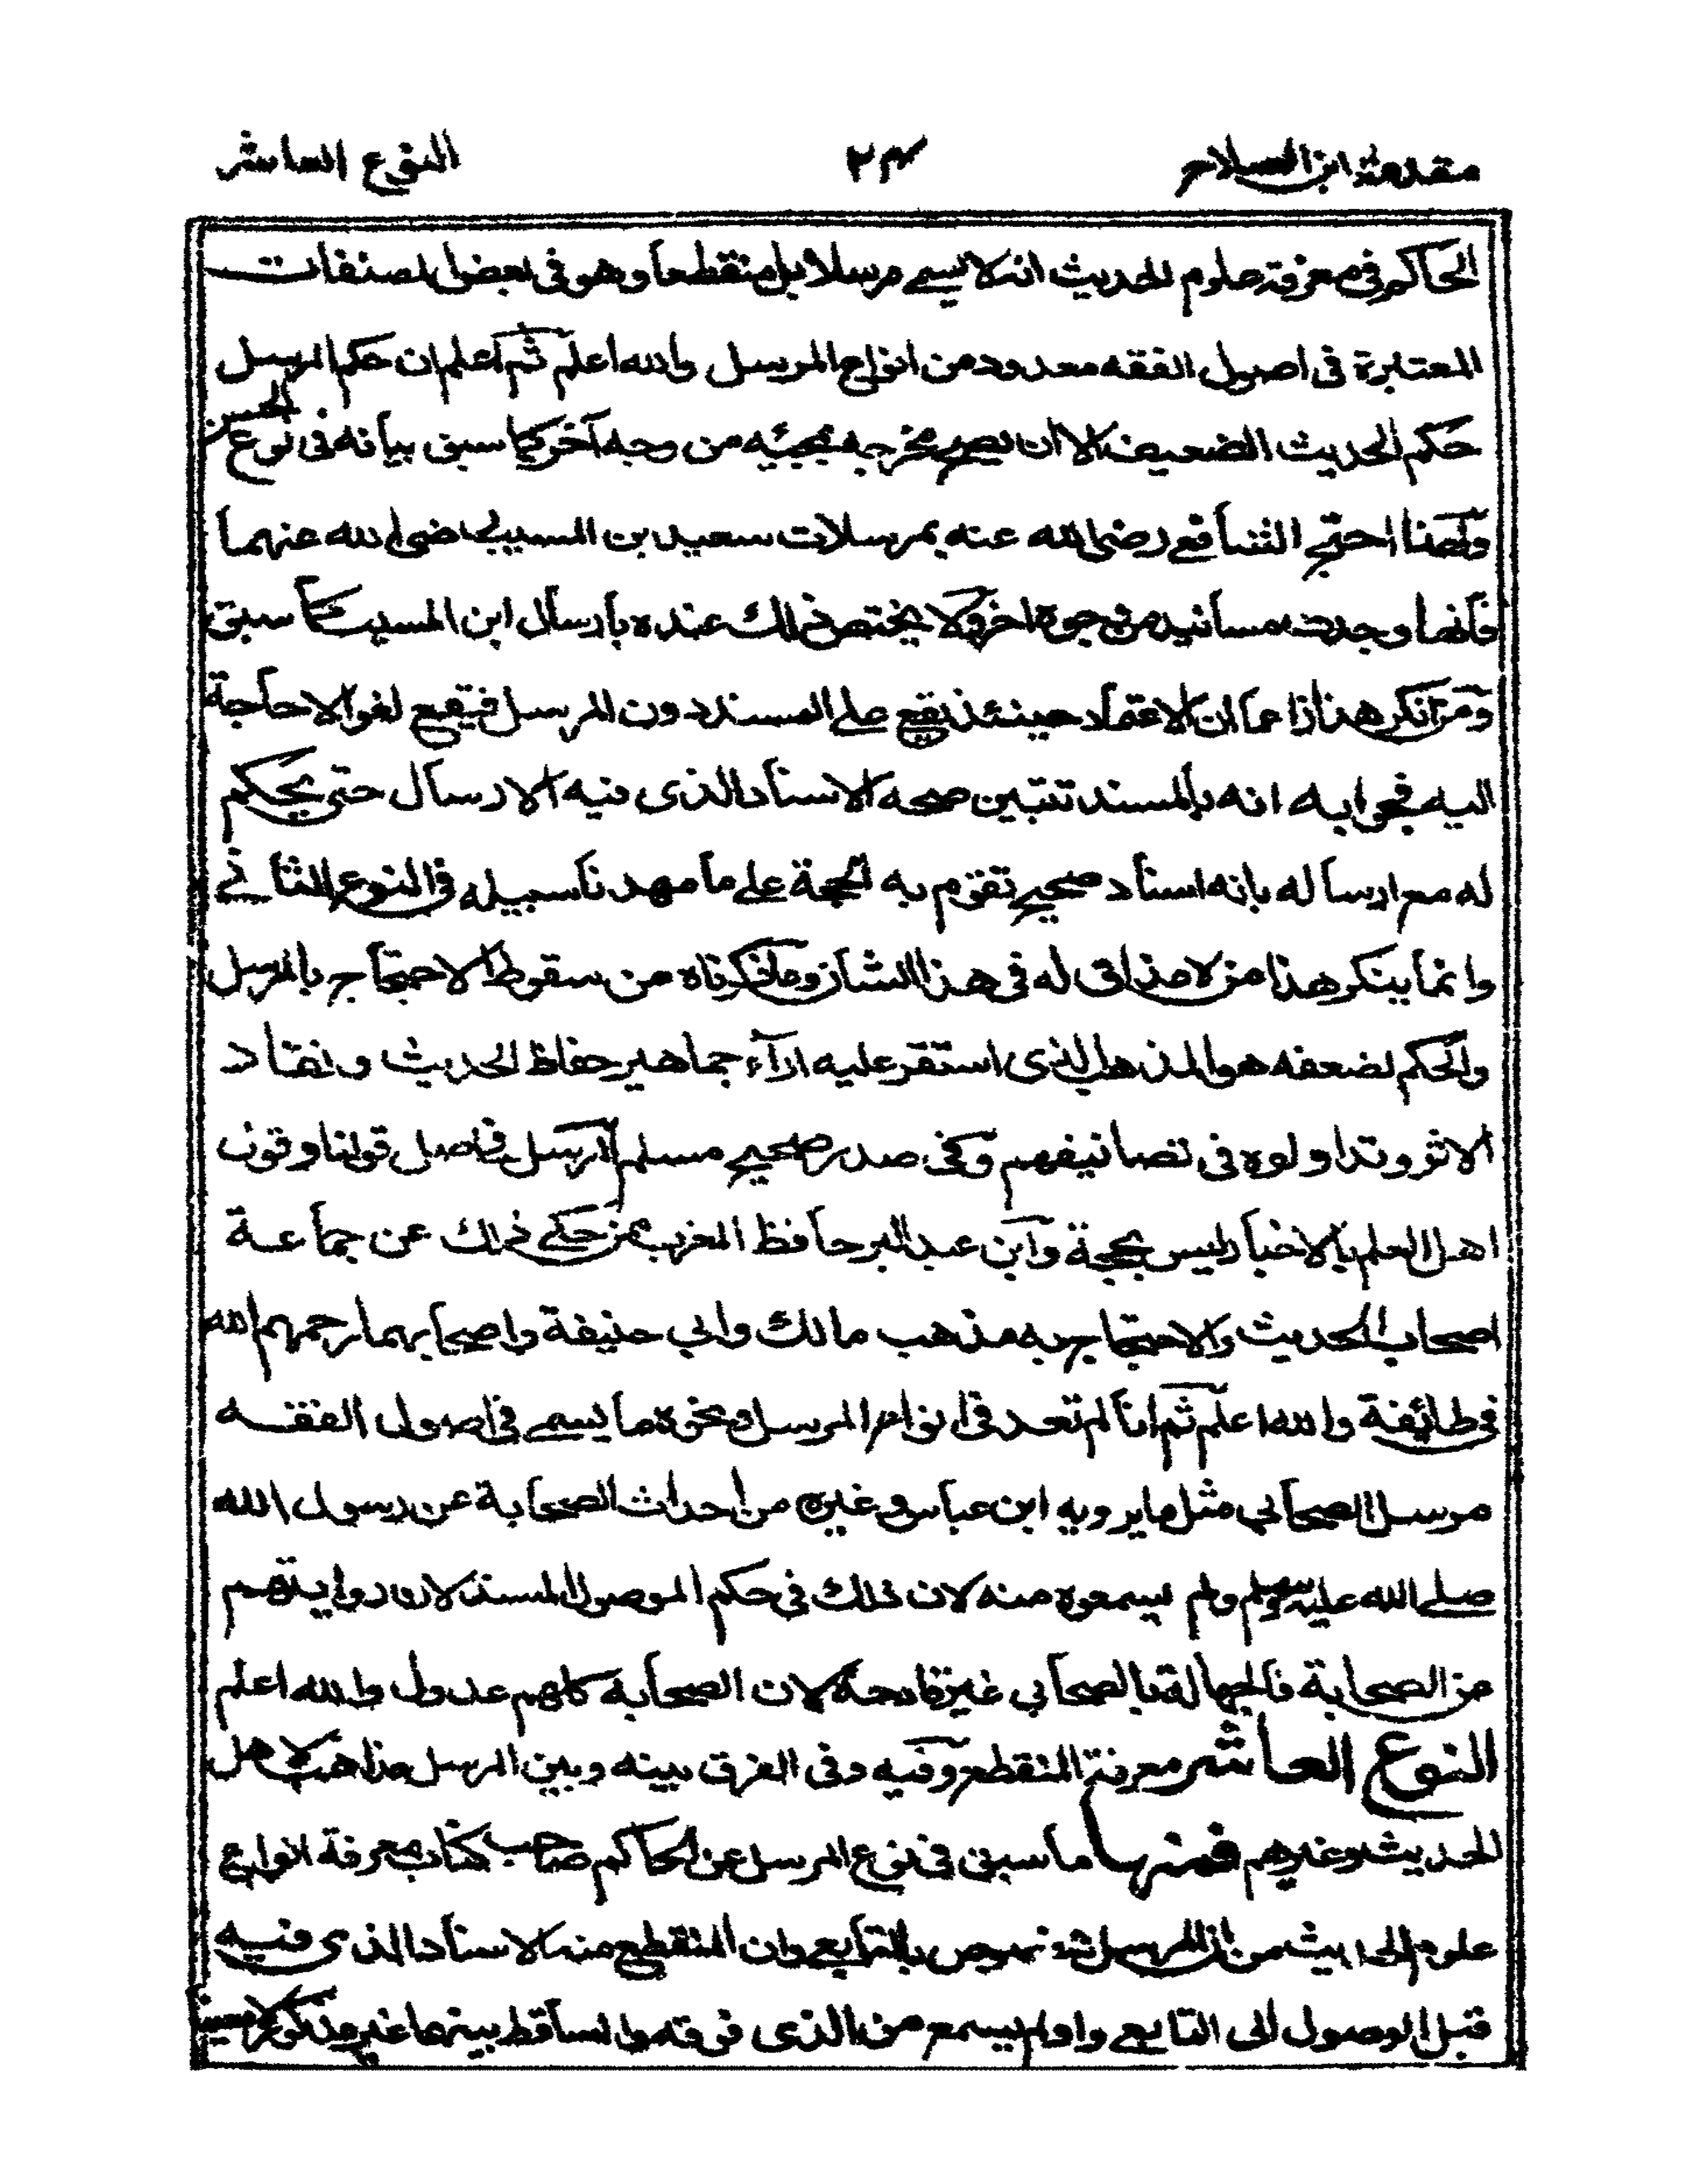 مقدمة ابن الصلاح ۲۴ النوع العاشر
الحاكم في معرفة علوم الحديث انه لا يسمى مرسلا بل منقطعا وهو في بعض المصنفات
المعتبرة في اصول الفقه معدود من انواع المرسل والله اعلم ثم اعلم ان حكم المرسل
حكم الحديث الضعيف الا ان يصح مخرجه بمجيئه من وجه آخر كما سبق بيانه في نوع الحسن
ولهذا احتج الشافعي رضي الله عنه بمرسلات سعيد بن المسيب رضي الله عنهما
فانها وجدت مسانيد من وجوه اخر ولا يختص ذلك عنده بارسال ابن المسيب كما سبق
ومن انكر هذا زاعما ان الاعتماد حينئذ يقع على المسند دون المرسل فيقع لغوا لا حاجة
اليه فجوابه انه بالمسند تتبين صحة الاسناد الذي فيه الارسال حتى يحكم
له مع ارساله بانه اسناد صحيح تقوم به الحجة على ما مهدنا سبيله في النوع الثاني
وانما ينكر هذا من لا مذاق له في هذا الشان وما ذكرناه من سقوط الاحتجاج بالمرسل
والحكم بضعفه هو المذهب الذي استقر عليه اراء جماهير حفاظ الحديث ونقاد
الاثر وتداولوه في تصانيفهم وفي صدر صحيح مسلم المرسل في اصل قولنا وقول
اهل العلم بالاخبار ليس بحجة وابن عبد البر حافظ المغرب ممن حكى ذلك عن جماعة
اصحاب الحديث والاحتجاج به مذهب مالك وابي حنيفة واصحابهما رحمهم الله
في طائفة والله اعلم ثم انا لم نعد في انواع المرسل ونحوه ما يسمى في اصول الفقه
مرسل الصحابي مثل ما يرويه ابن عباس وغيره من احداث الصحابة عن رسول الله
صلى الله عليه وسلم ولم يسمعوه منه لان ذلك في حكم الموصول المسند لان روايتهم
عن الصحابة فالجهالة بالصحابي غير قادحة لان الصحابة كلهم عدول والله اعلم
النوع العاشر معرفة المنقطع وفيه وفى الفرق بينه وبين المرسل مذاهب لاهل
الحديث وغيرهم فمنها ما سبق في نوع المرسل عن الحاكم صاحب كتاب معرفة انواع
علوم الحديث من ان المرسل مخصوص بالتابعي وان المنقطع منه الاسناد الذي فيه
قبل الوصول الى التابعي راو لم يسمع من الذي فوقه والساقط بينهما غير مذكور لا معينا